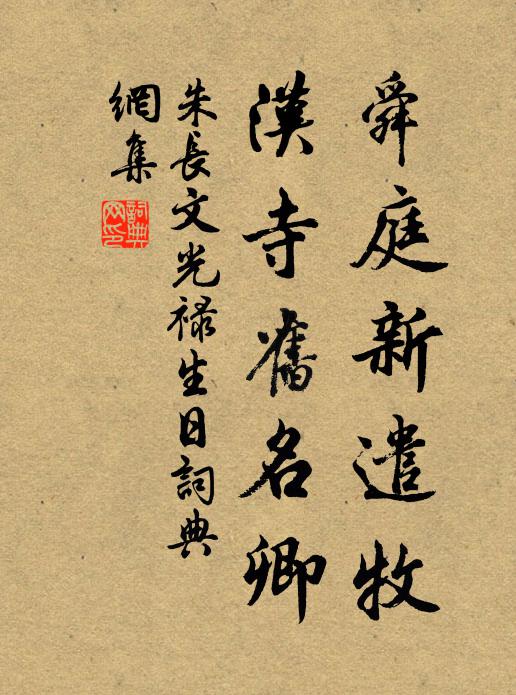 舜庭新遣牧
漢寺舊名卿
朱長文光禄生日詞典
網集
詞典
网印